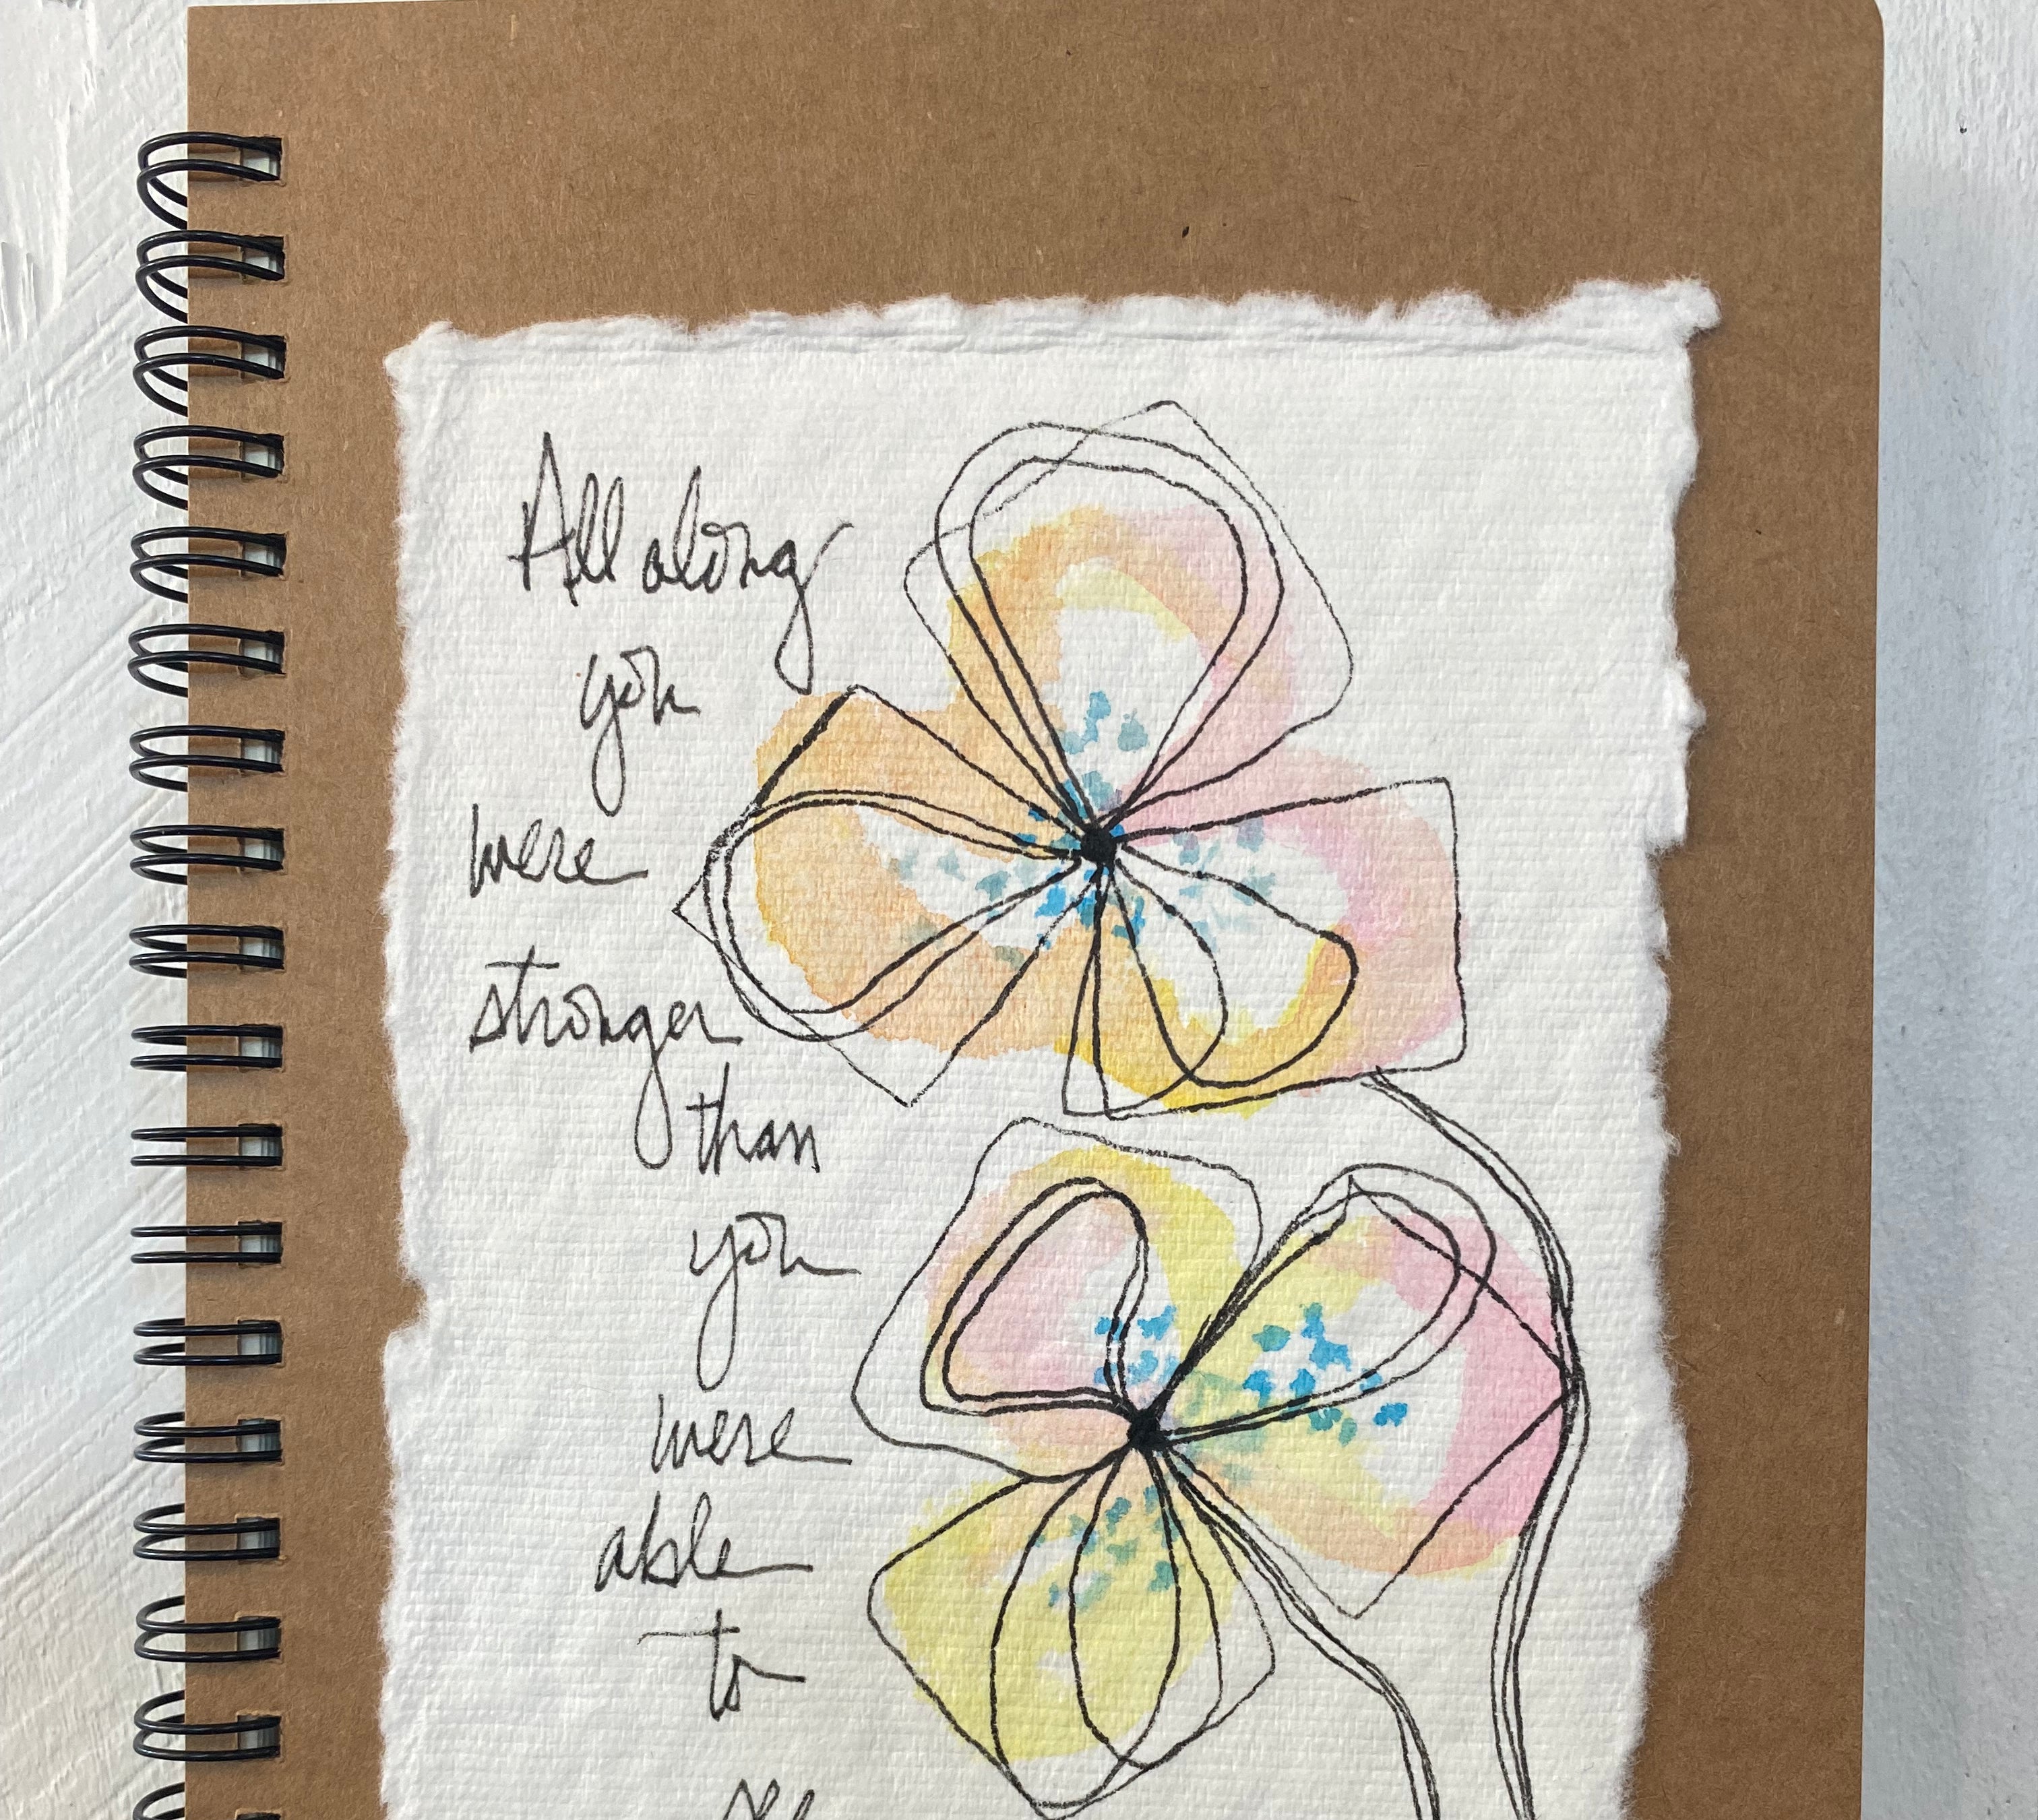 All along
you
were
stronger
than
you
were
able
to